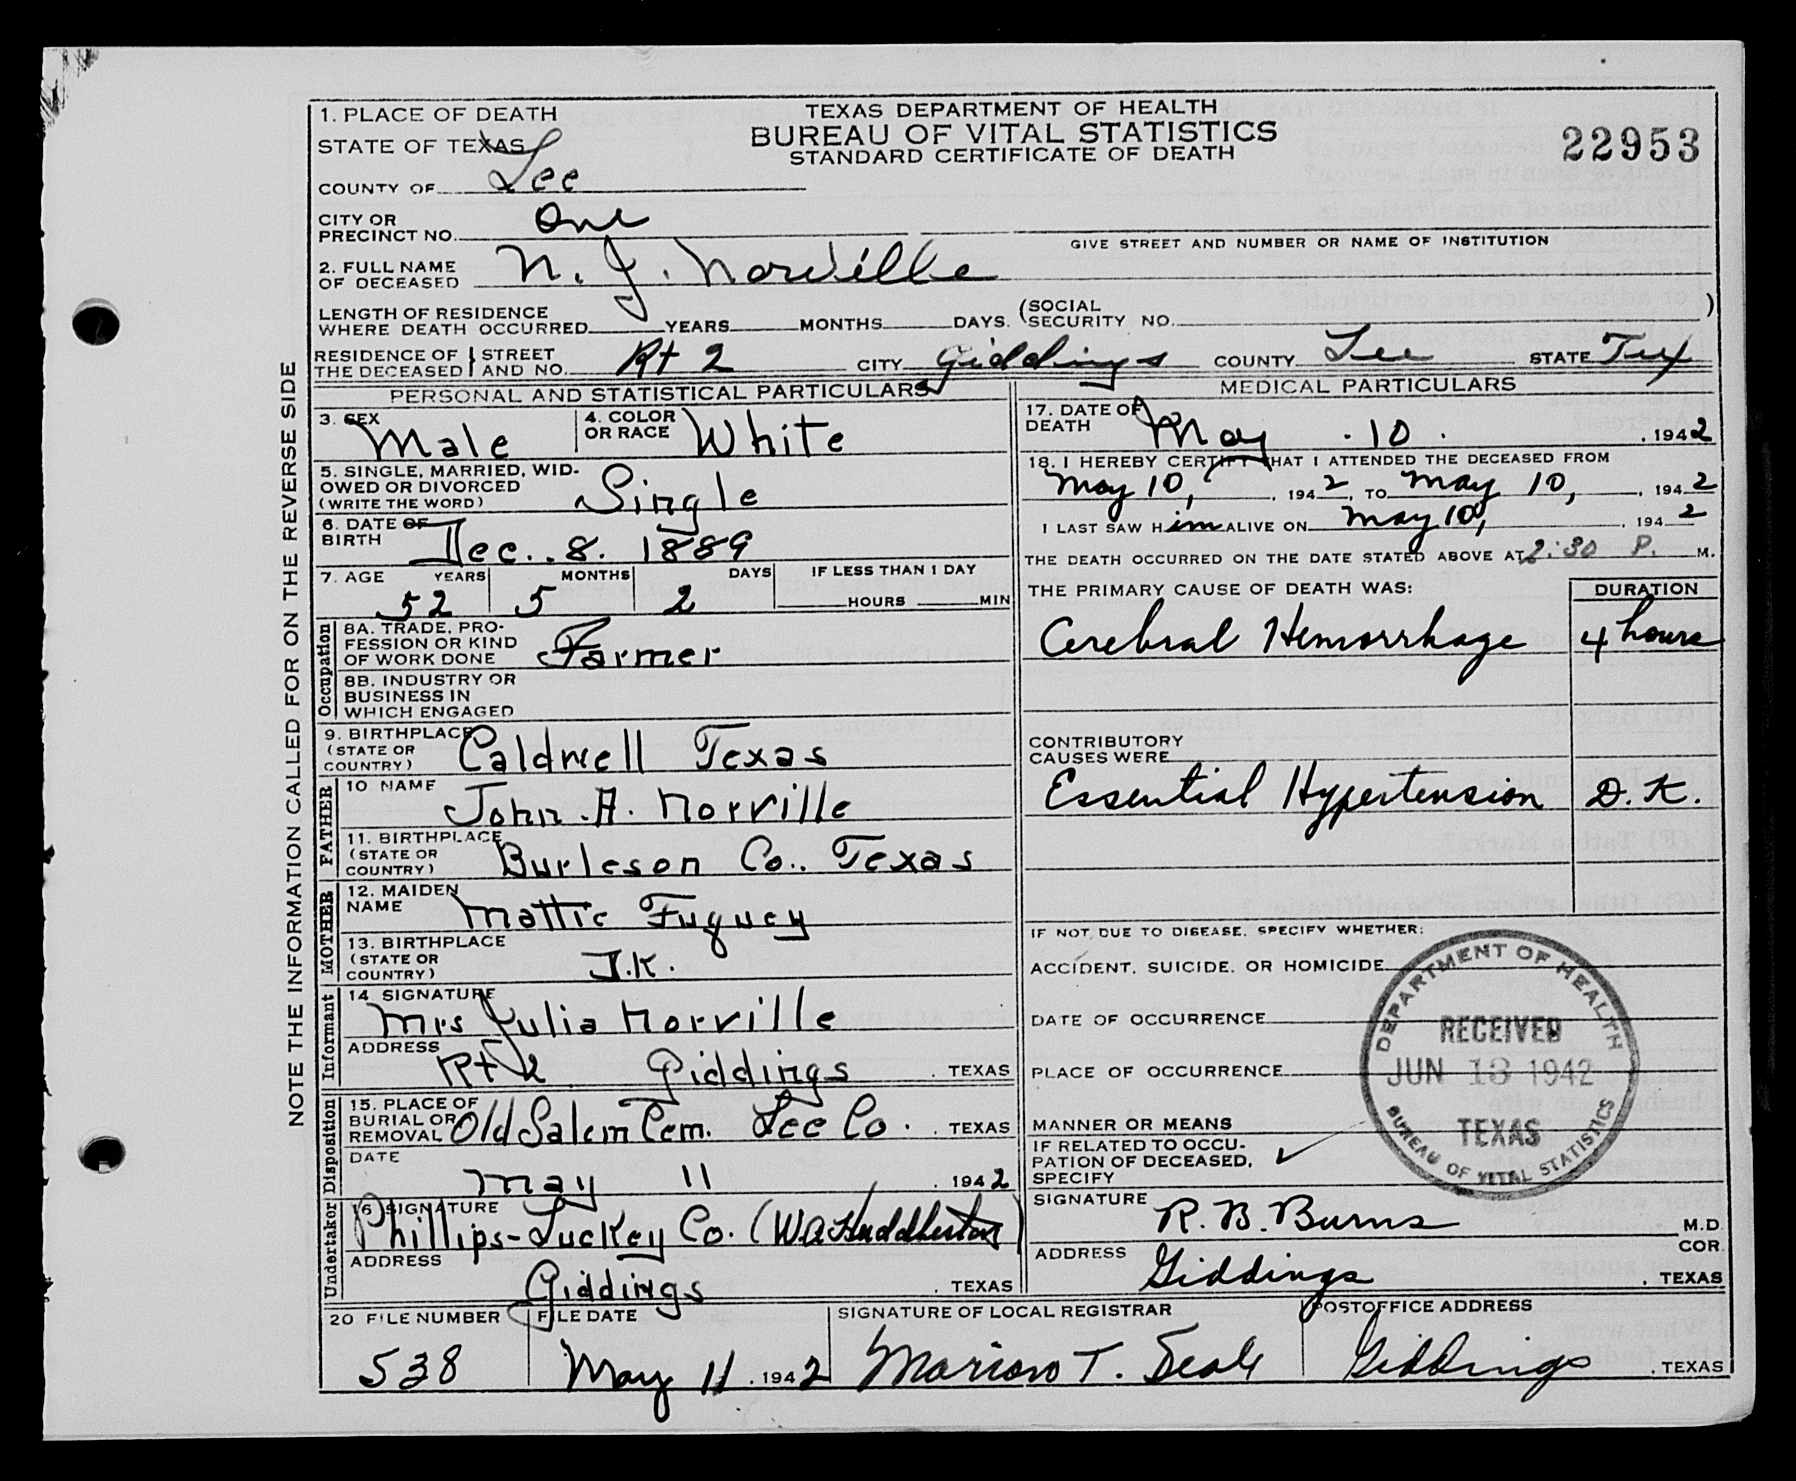 1. PLACE OF DEATH
STATE OF TEXAS
COUNTY OF Lee
CITY OR
PRECINCT NO. One
TEXAS DEPARTMENT OF HEALTH
BUREAU OF VITAL STATISTICS
STANDARD CERTIFICATE OF DEATH
22953
GIVE STREET AND NUMBER OR NAME OF INSTITUTION
2. FULL NAME
OF DECEASED N. J. Norville
LENGTH OF RESIDENCE
WHERE DEATH OCCURRED YEARS MONTHS DAYS. (SOCIAL
SECURITY NO. )
RESIDENCE OF
THE DECEASED } STREET
AND NO. Rt 2 CITY Giddings COUNTY Lee STATE Tex
PERSONAL AND STATISTICAL PARTICULARS
3. SEX Male
4. COLOR
OR RACE White
5. SINGLE, MARRIED, WID-
OWED OR DIVORCED
(WRITE THE WORD) Single
6. DATE OF
BIRTH Dec. 8. 1889
7. AGE YEARS MONTHS DAYS IF LESS THAN 1 DAY
52 5 2 HOURS MIN
Occupation
8A. TRADE, PRO-
FESSION OR KIND
OF WORK DONE Farmer
8B. INDUSTRY OR
BUSINESS IN
WHICH ENGAGED
9. BIRTHPLACE
(STATE OR
COUNTRY) Caldwell Texas
FATHER
10 NAME John A. Norville
11. BIRTHPLACE
(STATE OR
COUNTRY) Burleson Co., Texas
MOTHER
12. MAIDEN
NAME Mattie Fuquey
13. BIRTHPLACE
(STATE OR
COUNTRY)
Informant
14. SIGNATURE Mrs Julia Norville
ADDRESS Rt 2 Giddings . TEXAS
Disposition
15. PLACE OF
BURIAL OR
REMOVAL Old Salem Cem. Lee Co. . TEXAS
DATE May 11 . 1942
Undertaker
16 SIGNATURE
Phillips-Luckey Co. (W.A. Huddleston)
ADDRESS Giddings . TEXAS
MEDICAL PARTICULARS
17. DATE OF
DEATH May 10. . 1942
18. I HEREBY CERTIFY THAT I ATTENDED THE DECEASED FROM
May 10, , 1942, TO May 10, , 1942
I LAST SAW Him ALIVE ON May 10, , 1942
THE DEATH OCCURRED ON THE DATE STATED ABOVE AT 2:30 P. M.
THE PRIMARY CAUSE OF DEATH WAS: DURATION
Cerebral Hemorrhage 4 hours
CONTRIBUTORY
CAUSES WERE
Essential Hypertension D.K.
IF NOT DUE TO DISEASE, SPECIFY WHETHER:
ACCIDENT, SUICIDE, OR HOMICIDE
DATE OF OCCURRENCE
PLACE OF OCCURRENCE
MANNER OR MEANS
IF RELATED TO OCCU-
PATION OF DECEASED,
SPECIFY
DEPARTMENT OF HEALTH
RECEIVED
JUN 13 1942
TEXAS
BUREAU OF VITAL STATISTICS
SIGNATURE R. B. Burns M.D.
COR.
ADDRESS Giddings . TEXAS
20 FILE NUMBER FILE DATE SIGNATURE OF LOCAL REGISTRAR POSTOFFICE ADDRESS
538 May 11 . 1942 Marion T. Seale Giddings . TEXAS
NOTE THE INFORMATION CALLED FOR ON THE REVERSE SIDE